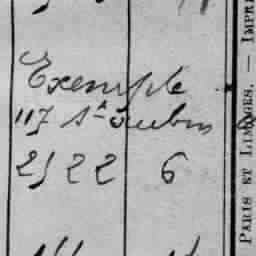 Exemple
117 St Aubin
2522 6
PARIS ET LIMOGES. — IMPRI